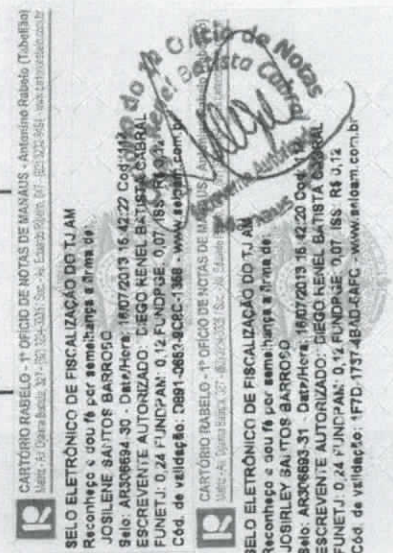 CARTÓRIO RABELO - 1º OFÍCIO DE NOTAS DE MANAUS - Antonino Rabelo (Tabelião)
SELO ELETRÔNICO DE FISCALIZAÇÃO DO TJ AM
Reconheço e dou fé por semelhança a firma de:
JOSILENE SANTOS BARROSO
Selo: AR306694-30 - Data/Hora: 16/07/2013 15:42:22 Cod: 1114
ESCREVENTE AUTORIZADO: DIEGO KENEL BATISTA CABRAL
FUNETJ: 0,24 FUNDPAM: 0,12 FUNDPGE: 0,07 ISS: R$ 0,12
Cód. de validação: - www.seloam.com.br
CARTÓRIO RABELO - 1º OFÍCIO DE NOTAS DE MANAUS
SELO ELETRÔNICO DE FISCALIZAÇÃO DO TJ AM
Reconheço e dou fé por semelhança a firma de:
JOSIRLEY SANTOS BARROSO
Selo: AR306693-31 - Data/Hora: 16/07/2013 15:42:20 Cod:
ESCREVENTE AUTORIZADO: DIEGO KENEL BATISTA CABRAL
FUNETJ: 0,24 FUNDPAM: 0,12 FUNDPGE: 0,07 ISS: R$ 0,12
Cód. de validação: 1F7D-1737-4BAD-CAFC - www.seloam.com.br
do 1º Ofício de Notas
Batista Cabral
Escrevente Autorizado
Manaus